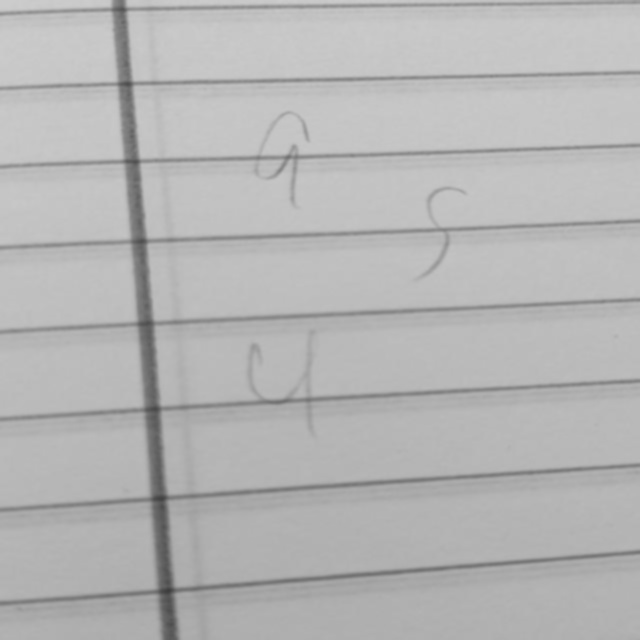 9
5
4